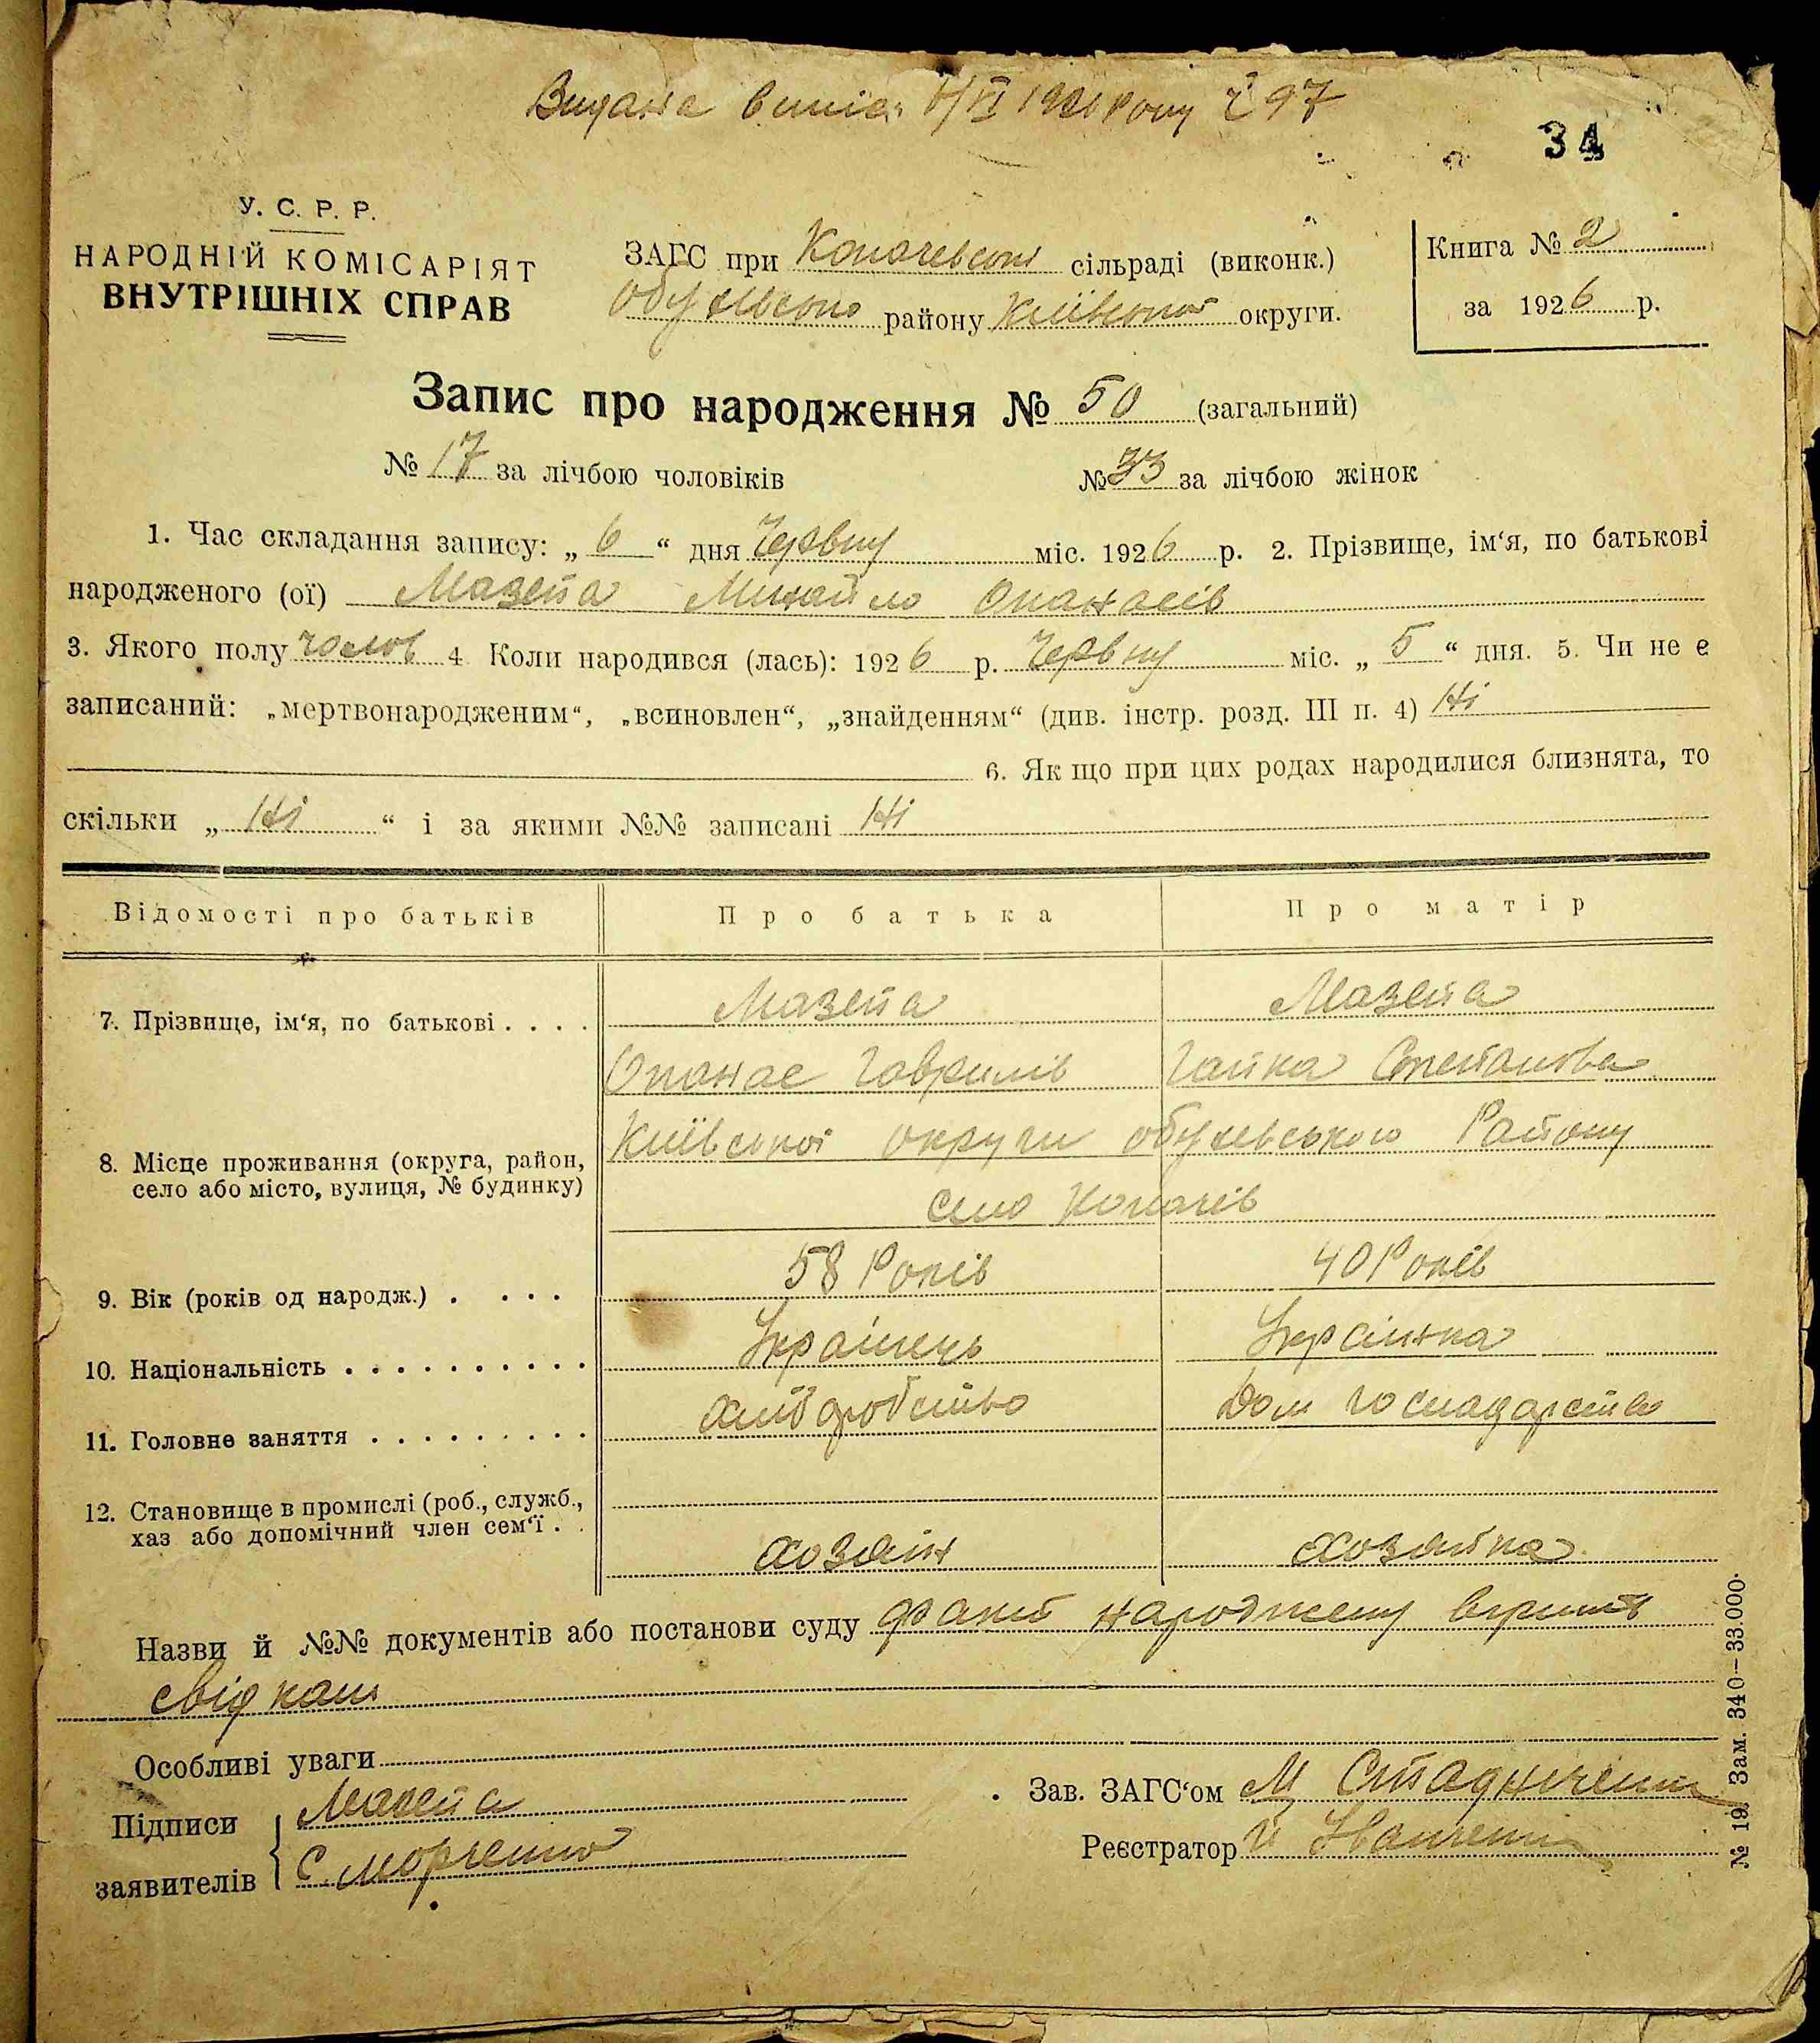 Видана випис 6/VI 1926 року № 97
34
У. С. Р. Р.
НАРОДНІЙ КОМІСАРІЯТ
ВНУТРІШНІХ СПРАВ
ЗАГС при Копачевској сільраді (виконк.)
району Київської округи.
Книга № 2
за 1926 р.
Запис про народження № 50 (загальний)
№ 17 за лічбою чоловіків № 33 за лічбою жінок
1. Час складання запису: „ 6 “ дня Червну міс. 1926 р. 2. Прізвище, ім‘я, по батькові
народженого (ої) Мазепа Михайло Опанасів
3. Якого полу чолов 4 Коли народився (лась): 1926 р. Червну міс. „ 5 “ дня. 5. Чи не є
записаний: „мертвонародженим“, „всиновлен“, „знайденням“ (див. інстр. розд. III п. 4) Ні
6. Як що при цих родах народилися близнята, то
скільки „ Ні “ і за якими №№ записані Ні
Відомості про батьків Про батька Про матір
7. Прізвище, ім‘я, по батькові . . . . Мазепа Мазепа
Опанас Гаврилів Ганка Степанова
8. Місце проживання (округа, район, Київської округи обухевського Району
село або місто, вулиця, № будинку) село Копачів
9. Вік (років од народж.) . . . . 58 Років 40 Років
10. Національність . . . . . . . . . . Українець Українка
11. Головне заняття . . . . . . . . . хлібробство Дом господарства
12. Становище в промислі (роб., служб.,
хаз або допомічний член сем‘ї . . хозяін хозяйка
Назви й №№ документів або постанови суду факт народжену
свідками
Особливі уваги
Підписи Мазепа
заявителів Сморченко
Зав. ЗАГС‘ом М Стадниченко
Реєстратор Іванченко
№ 19. Зам. 340–33.000.